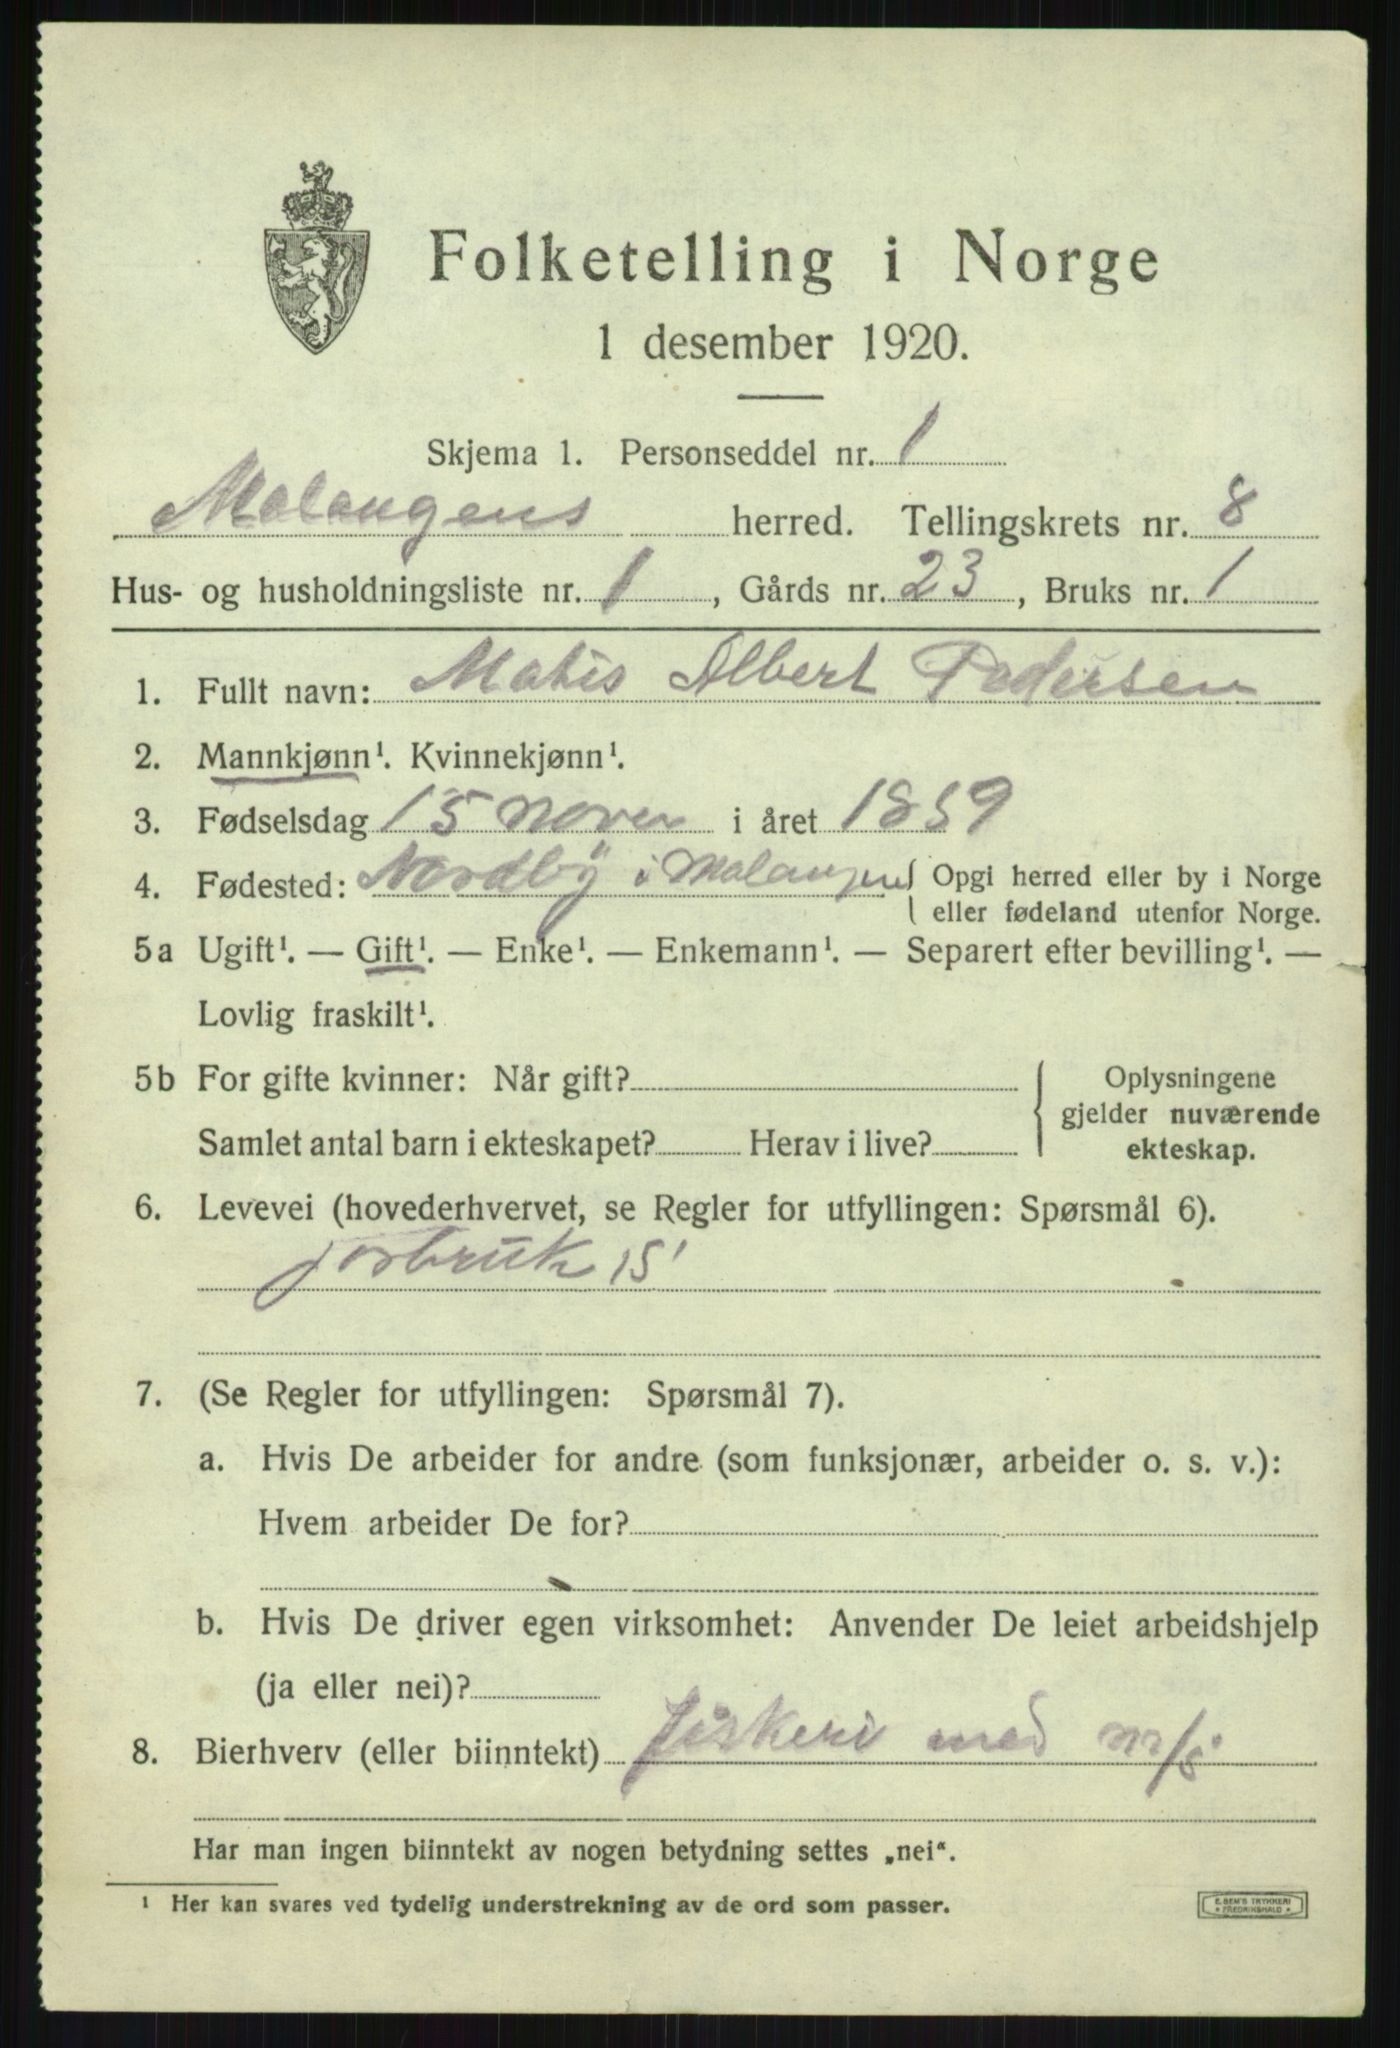 Folketelling i Norge
1 desember 1920.
Skjema 1. Personseddel nr. 1
Malangens herred. Tellingskrets nr. 8
Hus- og husholdningsliste nr. 1, Gårds nr. 23, Bruks nr. 1
1. Fullt navn: Matis Albert Pedersen
2. Mannkjønn¹. Kvinnekjønn¹.
3. Fødselsdag 15 Novem i året 1859
4. Fødested: Nordby i Malangen { Opgi herred eller by i Norge
eller fødeland utenfor Norge.
5a Ugift¹. — Gift¹. — Enke¹. — Enkemann¹. — Separert efter bevilling¹. —
Lovlig fraskilt¹.
5b For gifte kvinner: Når gift?
Samlet antal barn i ekteskapet? Herav i live?
Oplysningene
gjelder nuværende
ekteskap.
6. Levevei (hovederhvervet, se Regler for utfyllingen: Spørsmål 6).
jorbruk
7. (Se Regler for utfyllingen: Spørsmål 7).
a. Hvis De arbeider for andre (som funksjonær, arbeider o. s. v.):
Hvem arbeider De for?
b. Hvis De driver egen virksomhet: Anvender De leiet arbeidshjelp
(ja eller nei)?
8. Bierhverv (eller biinntekt) fiskeri med
Har man ingen biinntekt av nogen betydning settes „nei“.
¹ Her kan svares ved tydelig understrekning av de ord som passer.
E. SEM'S TRYKKERI
* FREDRIKSHALD *